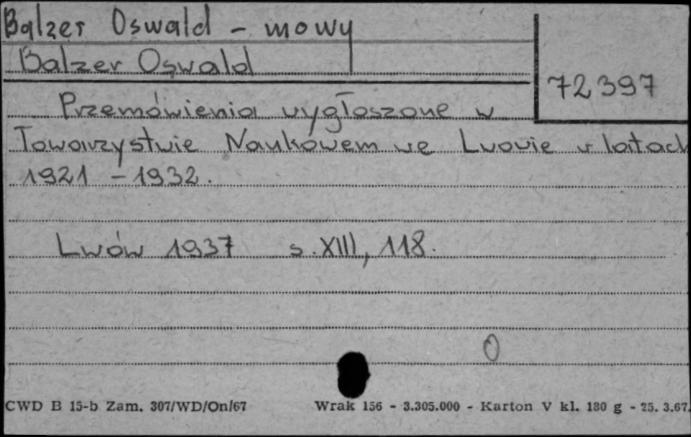 Balzer Oswald - mowy
Balzer Oswald
72397
Przemówienia wygłoszone w
Towarzystwie Naukowem we Lwowie w latach
1921 - 1932.
Lwów 1937 s. XIII, 118.
0
CWD B 15-b Zam. 307/WD/On/67 Wrak 156 - 3.305.000 - Karton V kl. 180 g - 25. 3.67.